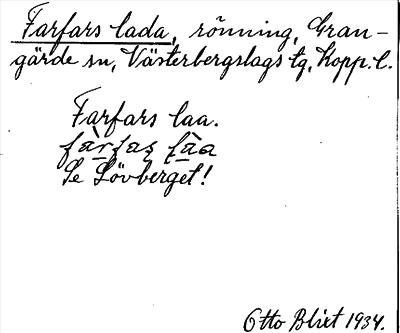 Farfars lada, rönning, Gran-
gärde sn, Västerbergslags tg, Kopp. l.
Farfars laa.
fàrfaʂ làa
Se Lövberget!
Otto Blixt 1934.